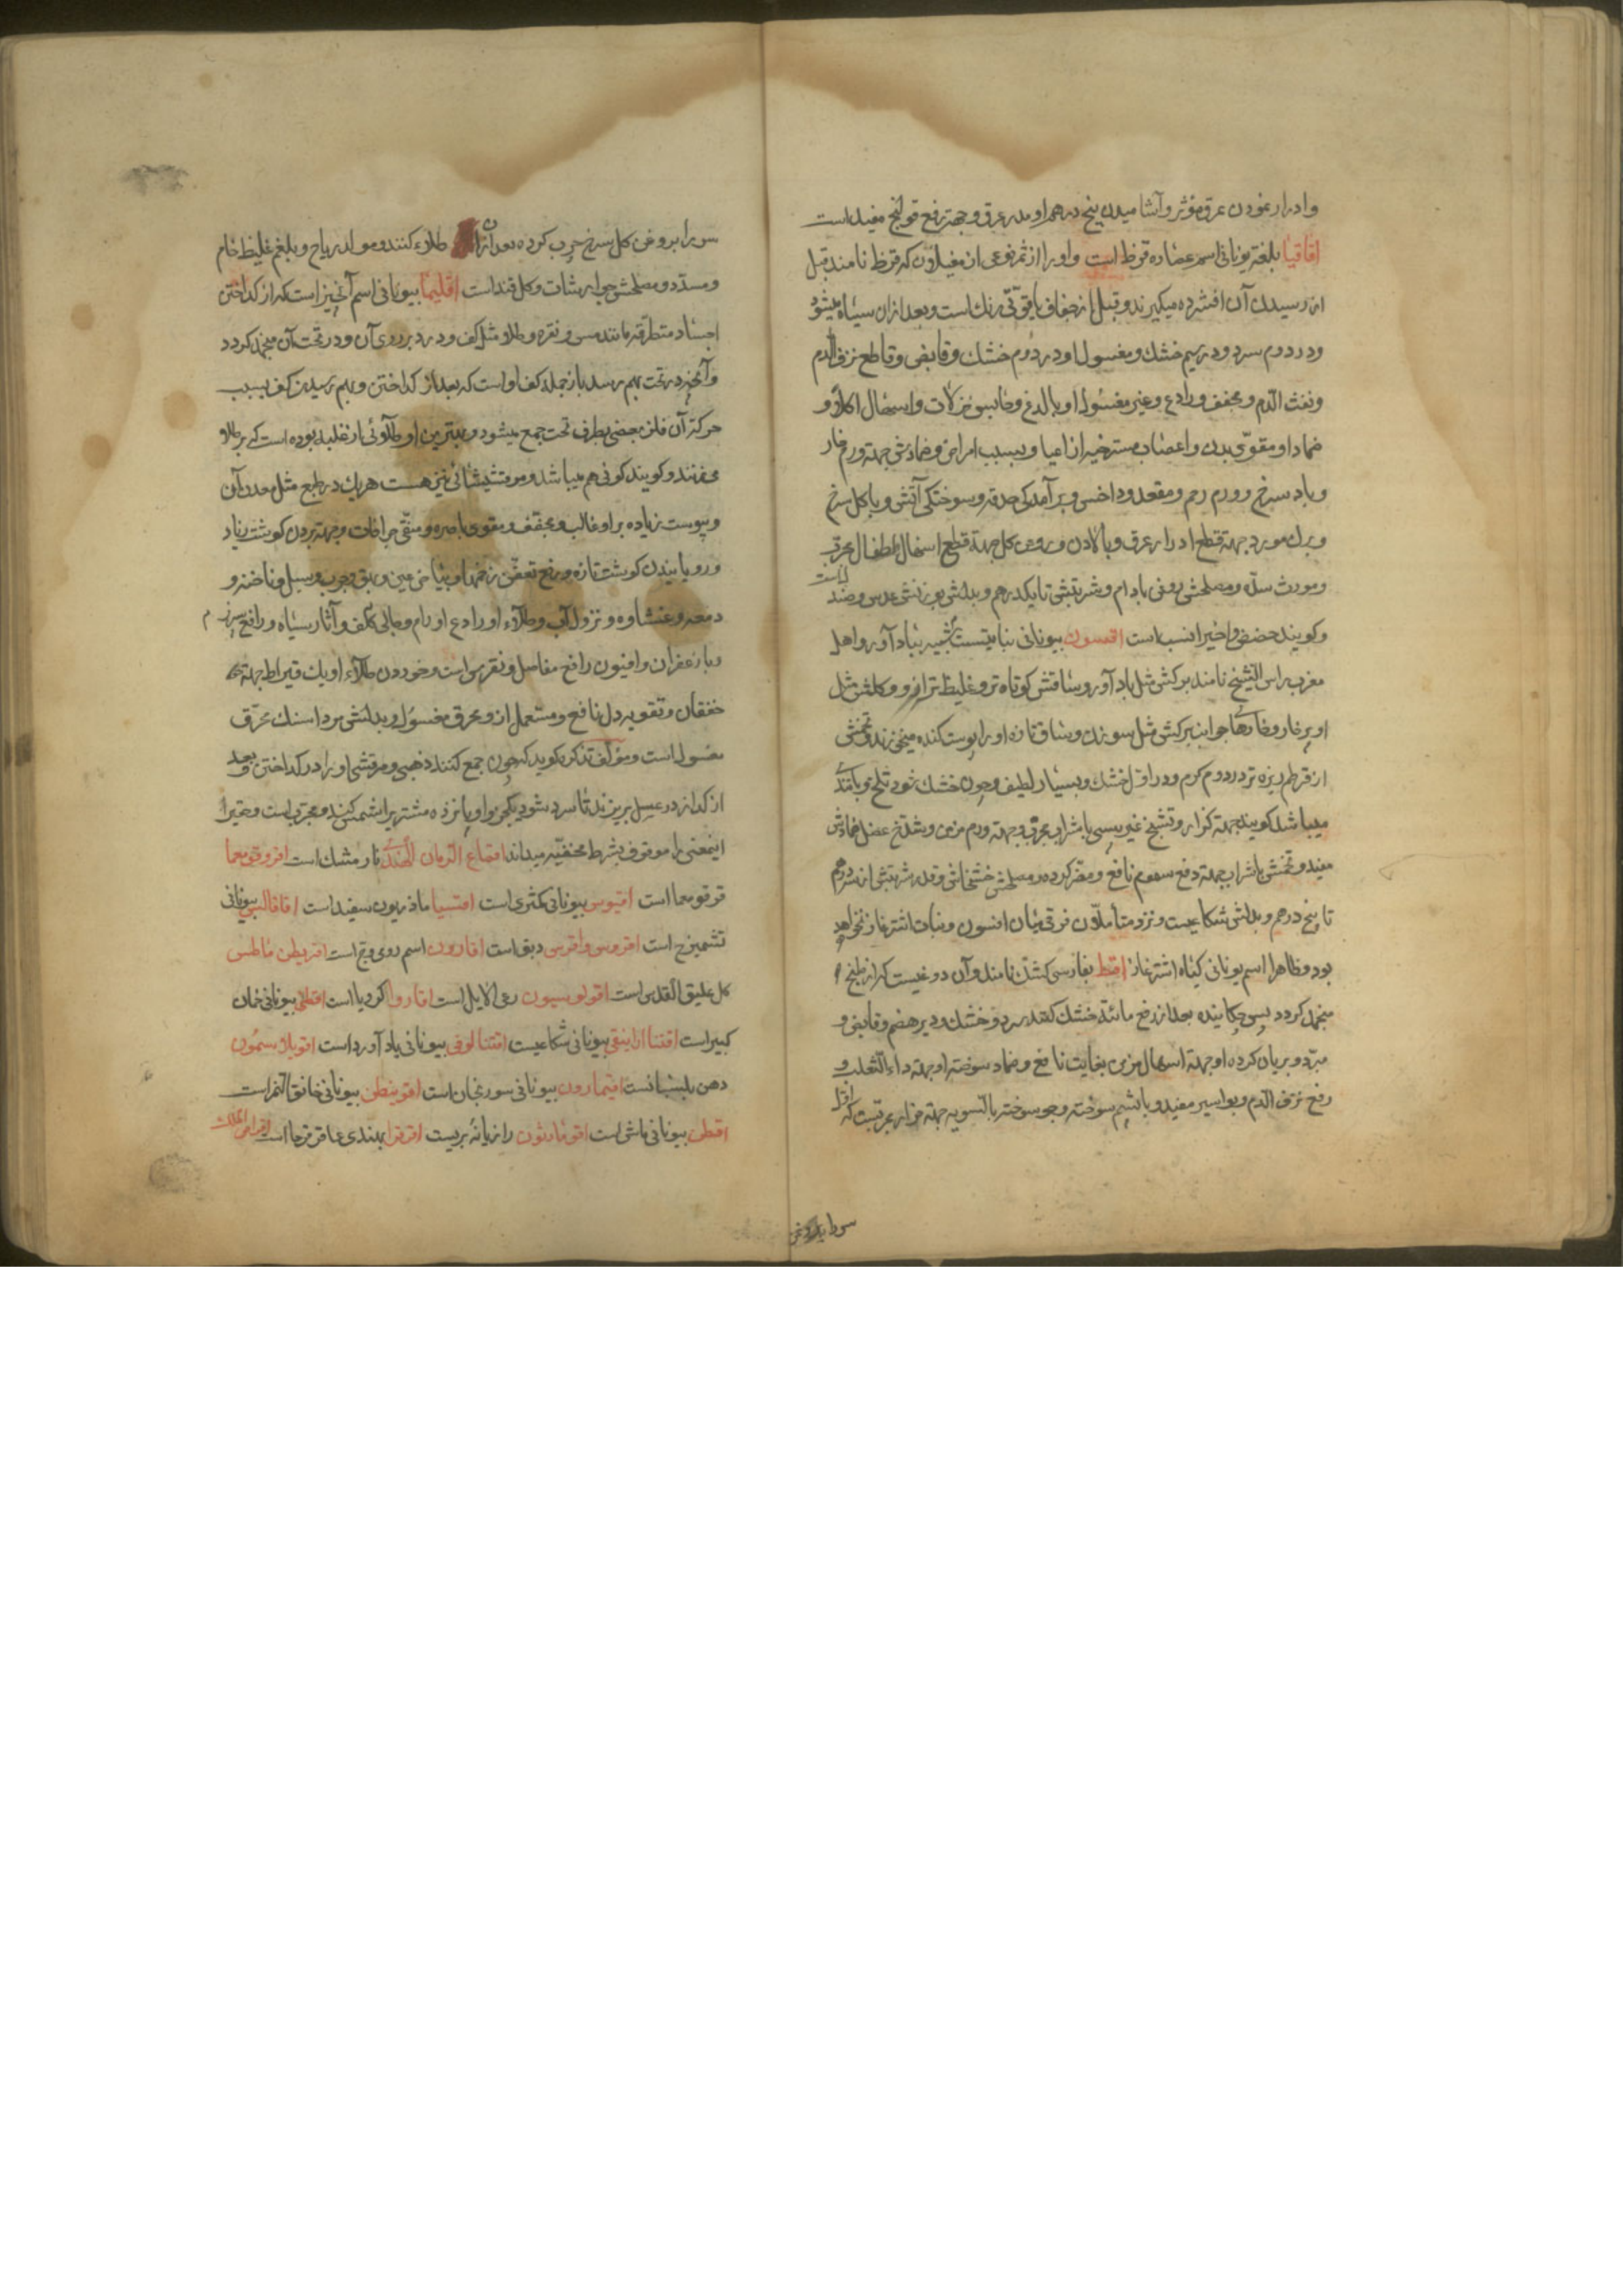 و ادرار نمودن عرق مؤثر و آشامیدن پنج درهم او مدر عرق و جهة رفع قولنج مفید است
اقاقیا بلغة یونانی اسم عصاره قرظ است و او را از ثمر نوعی از مغیلان که قرظ نامند قبل
از رسیدن آن افشرده میگیرند و قبل از جفاف یاقوتی رنك است و بعد از ان سیاه میشود
و در دوم سرد و در سیم خشك و مغسول او در دوم خشك و قابض و قاطع نزف الدم
و نفث الدم و مجفف و رادع و غیر مغسول او با لذع و حابس نزلات و اسهال اکلاً و
ضماد او مقوی بدن و اعضاء مسترخیه از اعیا و بسبب امراض و ضمادش جهة ورم حار
و باد سرخ و ورم رحم و مقعد و داخس و برآمدکی حدقه و سوختکی آتش و با کل سرخ
و برك مورد جهة قطع ادرار عرق و با لادن و روغن کل جهة قطع اسهال اطفال مجرب
و مورث سده و مصلحش روغن بادام و شربتش تا یکدرهم و بدلش بوزنش عدس و صندل است
و کویند حضض و اخیر انسب است اقسون بیونانی نباتیست شبیه بباد آورد و اهل
مغرب راس الشیخ نامند برکش مثل باد آورد و ساقش کوتاه تر و غلیظ تر از او و کلش مثل
او پر خار و خارها جوانب برکش مثل سوزن و ساق تازه او را پوست کنده میخورند و تخمش
از قرطم ریزه تر در دوم کرم و در اول خشك و بسیار لطیف و چون خشك شود تلخ و با تندی
میباشد کویند جهة کزاز و تشنج غیر یبسی با شراب مجرب و جهة ورم مزمن و شدخ عضل ضمادش
مفید و تخمش با شراب جهة دفع سموم نافع و مضر کرده و مصلحش خشخاش و قدر شربتش از سه درهم
تا پنج درهم و بدلش شکاعیست و نزد متأملان فرق میان اقسون و نبات اشترغاز نخواهد
بود و ظاهرا اسم یونانی کیاه اشترغاز اقط بفارسی کشك نامند و آن دوغیست که از طبخ
منجمد کردد پس چکانیده بعد از رفع مائیة خشك کنند سرد و خشك و دیر هضم و قابض و
مبرد و بریان کرده او جهة اسهال مزمن بغایت نافع و ضماد سوخته او جهة داء الثعلب و
رفع نزف الدم و بواسیر مفید و با پشم سوخته و جو سوخته بالسویه جهة خوار مجربست که اول
سر را بروغن
سر را بروغن کل سرخ چرب کرده بعد از ان طلاء کنند و مولد ریاح و بلغم غلیظ خام
و مسدد و مصلحش جوارشات و کل قند است اقلیمیا بیونانی اسم آنچیز است که از کداختن
اجساد متطرقه مانند مس و نقره و طلا مثل کف و درد بر روی آن و در تحت آن منجمد کردد
و آنچه در تحت بهم رسد باز جمله کف او است که بعد از کداختن و بهم رسیدن کف بسبب
حرکة آن فلز بعضی بطرف تحت جمع میشود و بهترین او طلائی از غلبه بوده است که بر طلا
میزنند و کویند کوفی هم میباشد و مرقشیشائی نیز هست هر یك در طبع مثل معدن آن
و یبوست زیاده بر او غالب و مجفف و مقوی باصره و منقی جراحات و جهة بردن کوشت زیاد
و رویانیدن کوشت تازه و رفع تعفن زخمها و بیاض عین و بهق و جرب و سبل و ناخنه و
دمعه و غشاوه و نزول آب و طلاء او رادع اورام و جالی کلف و آثار سیاه و رافع
و با زعفران و افیون رافع مفاصل و نقرس است و خوردن طلاء او یك قیراط جهة
خفقان و تقویه دل نافع و مستعمل از و محرق مغسول و بدلش مرداسنك محرق
مغسول است و مؤلف تذکره کوید که چون جمع کنند ذهبی و مرقشی او را در کداختن و بعد
از کداز در عسل بریزند تا سرد شود یکجزو او پانزده مشتری را شمس کند و مجرب است و حقیر
اینمعنی را موقوف بشرط مخفیه میداند اقماع الرمان الهندی نار مشك است اقروقومعما
قرقومعما است اقیوس بیونانی کمثری است اقتسیا ماذریون سفید است اقاقالیس بیونانی
تشمیزج است اقروس و اقرس دبق است اقارون اسم رومی وج است اقریطن ماطس
کل علیق القدس است اقولوسیون رعی الایل است اقاروا کرویا است اقطی بیونانی خمان
کبیر است اقتنا اراینقی بیونانی شکاعیست اقتنا لوقی بیونانی باد آورد است اقوبلاسمون
دهن بلسانست اقیمارون بیونانی سورنجان است اقونیطن بیونانی خانق النمر است
اقطن بیونانی ماش است اقومارثون رازیانه بریست اقرقرا بهندی عاقرقرحا است